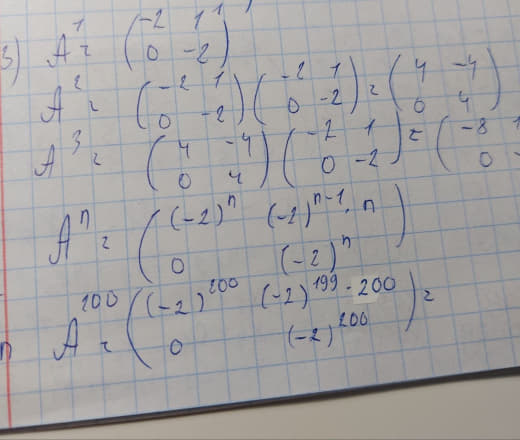 3) A¹ = (-2 1; 0 -2)
A² = (-2 1; 0 -2)(-2 1; 0 -2) = (4 -4; 0 4)
A³ = (4 -4; 0 4)(-2 1; 0 -2) = (-8 1; 0 -
Aⁿ = ((-2)ⁿ (-2)ⁿ⁻¹·n; 0 (-2)ⁿ)
A²⁰⁰ = ((-2)²⁰⁰ (-2)¹⁹⁹·200; 0 (-2)²⁰⁰) =